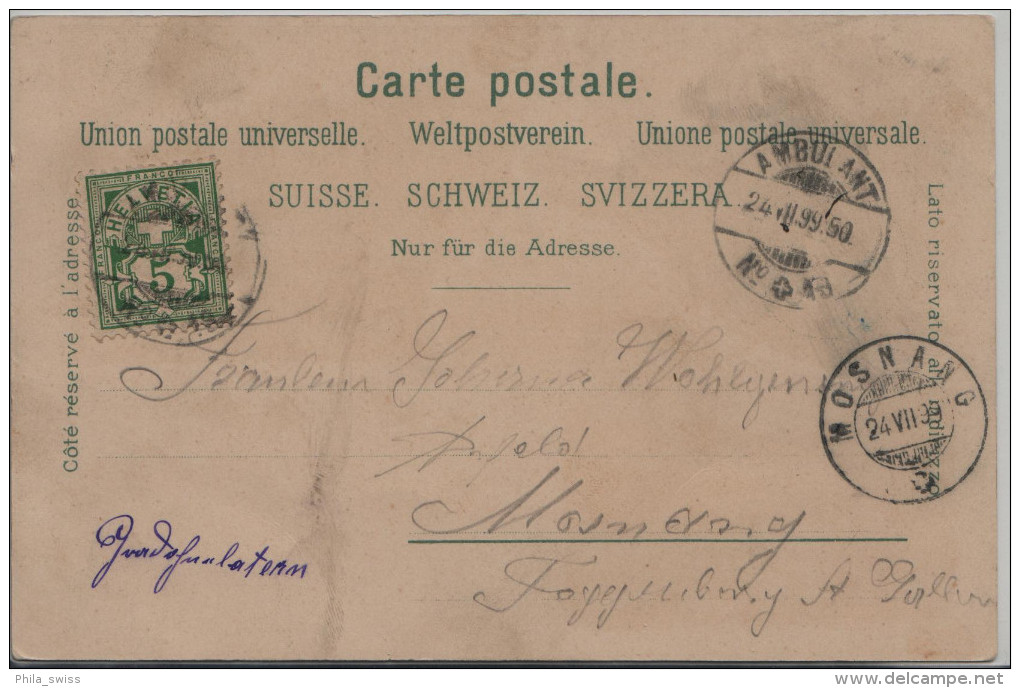 Carte postale.
Union postale universelle. Weltpostverein. Unione postale universale.
SUISSE. SCHWEIZ. SVIZZERA.
Nur für die Adresse.
Côté réservé à l'adresse.
Lato riservato all'indirizzo
FRANCO
HELVETIA
5
AMBULANT
24.VII.99.50.
No
MOSNANG
24 VII 99
Fräulein
Mosnang
Toggenburg St Gallen
Phila_swiss